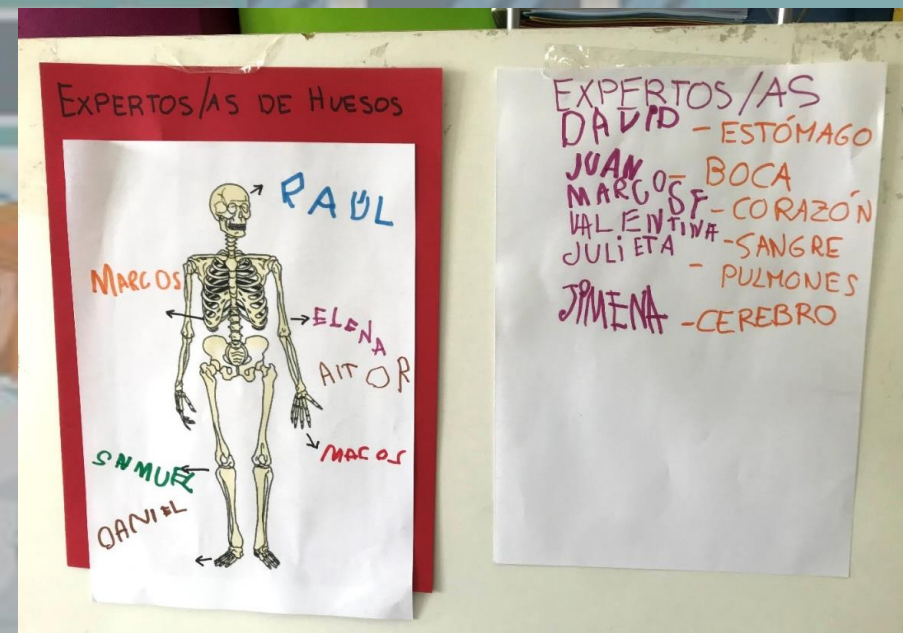 EXPERTOS/AS DE HUESOS
RAÚL
MARCOS
ELENA
AITOR
MACOS
SAMUEL
DANIEL
EXPERTOS/AS
DAVID - ESTÓMAGO
JUAN - BOCA
MARCOS F - CORAZÓN
VALENTINA - SANGRE
JULIETA - PULMONES
JIMENA - CEREBRO